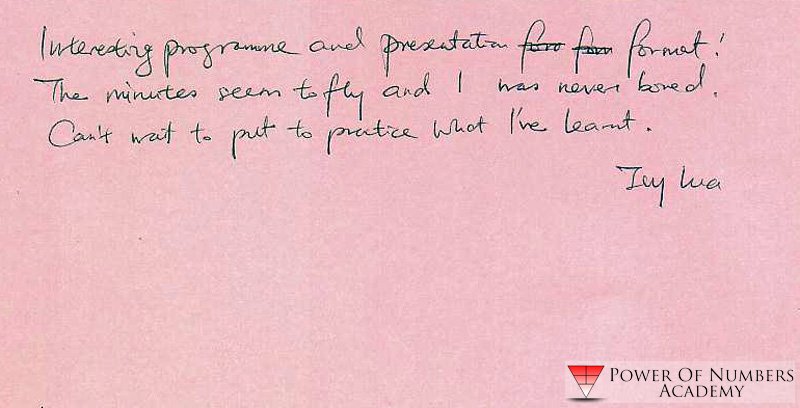 Interesting programme and presentation format!
The minutes seem to fly and I was never bored.
Can't wait to put to practice what I've learnt.
Ivy Lua
POWER OF NUMBERS
ACADEMY